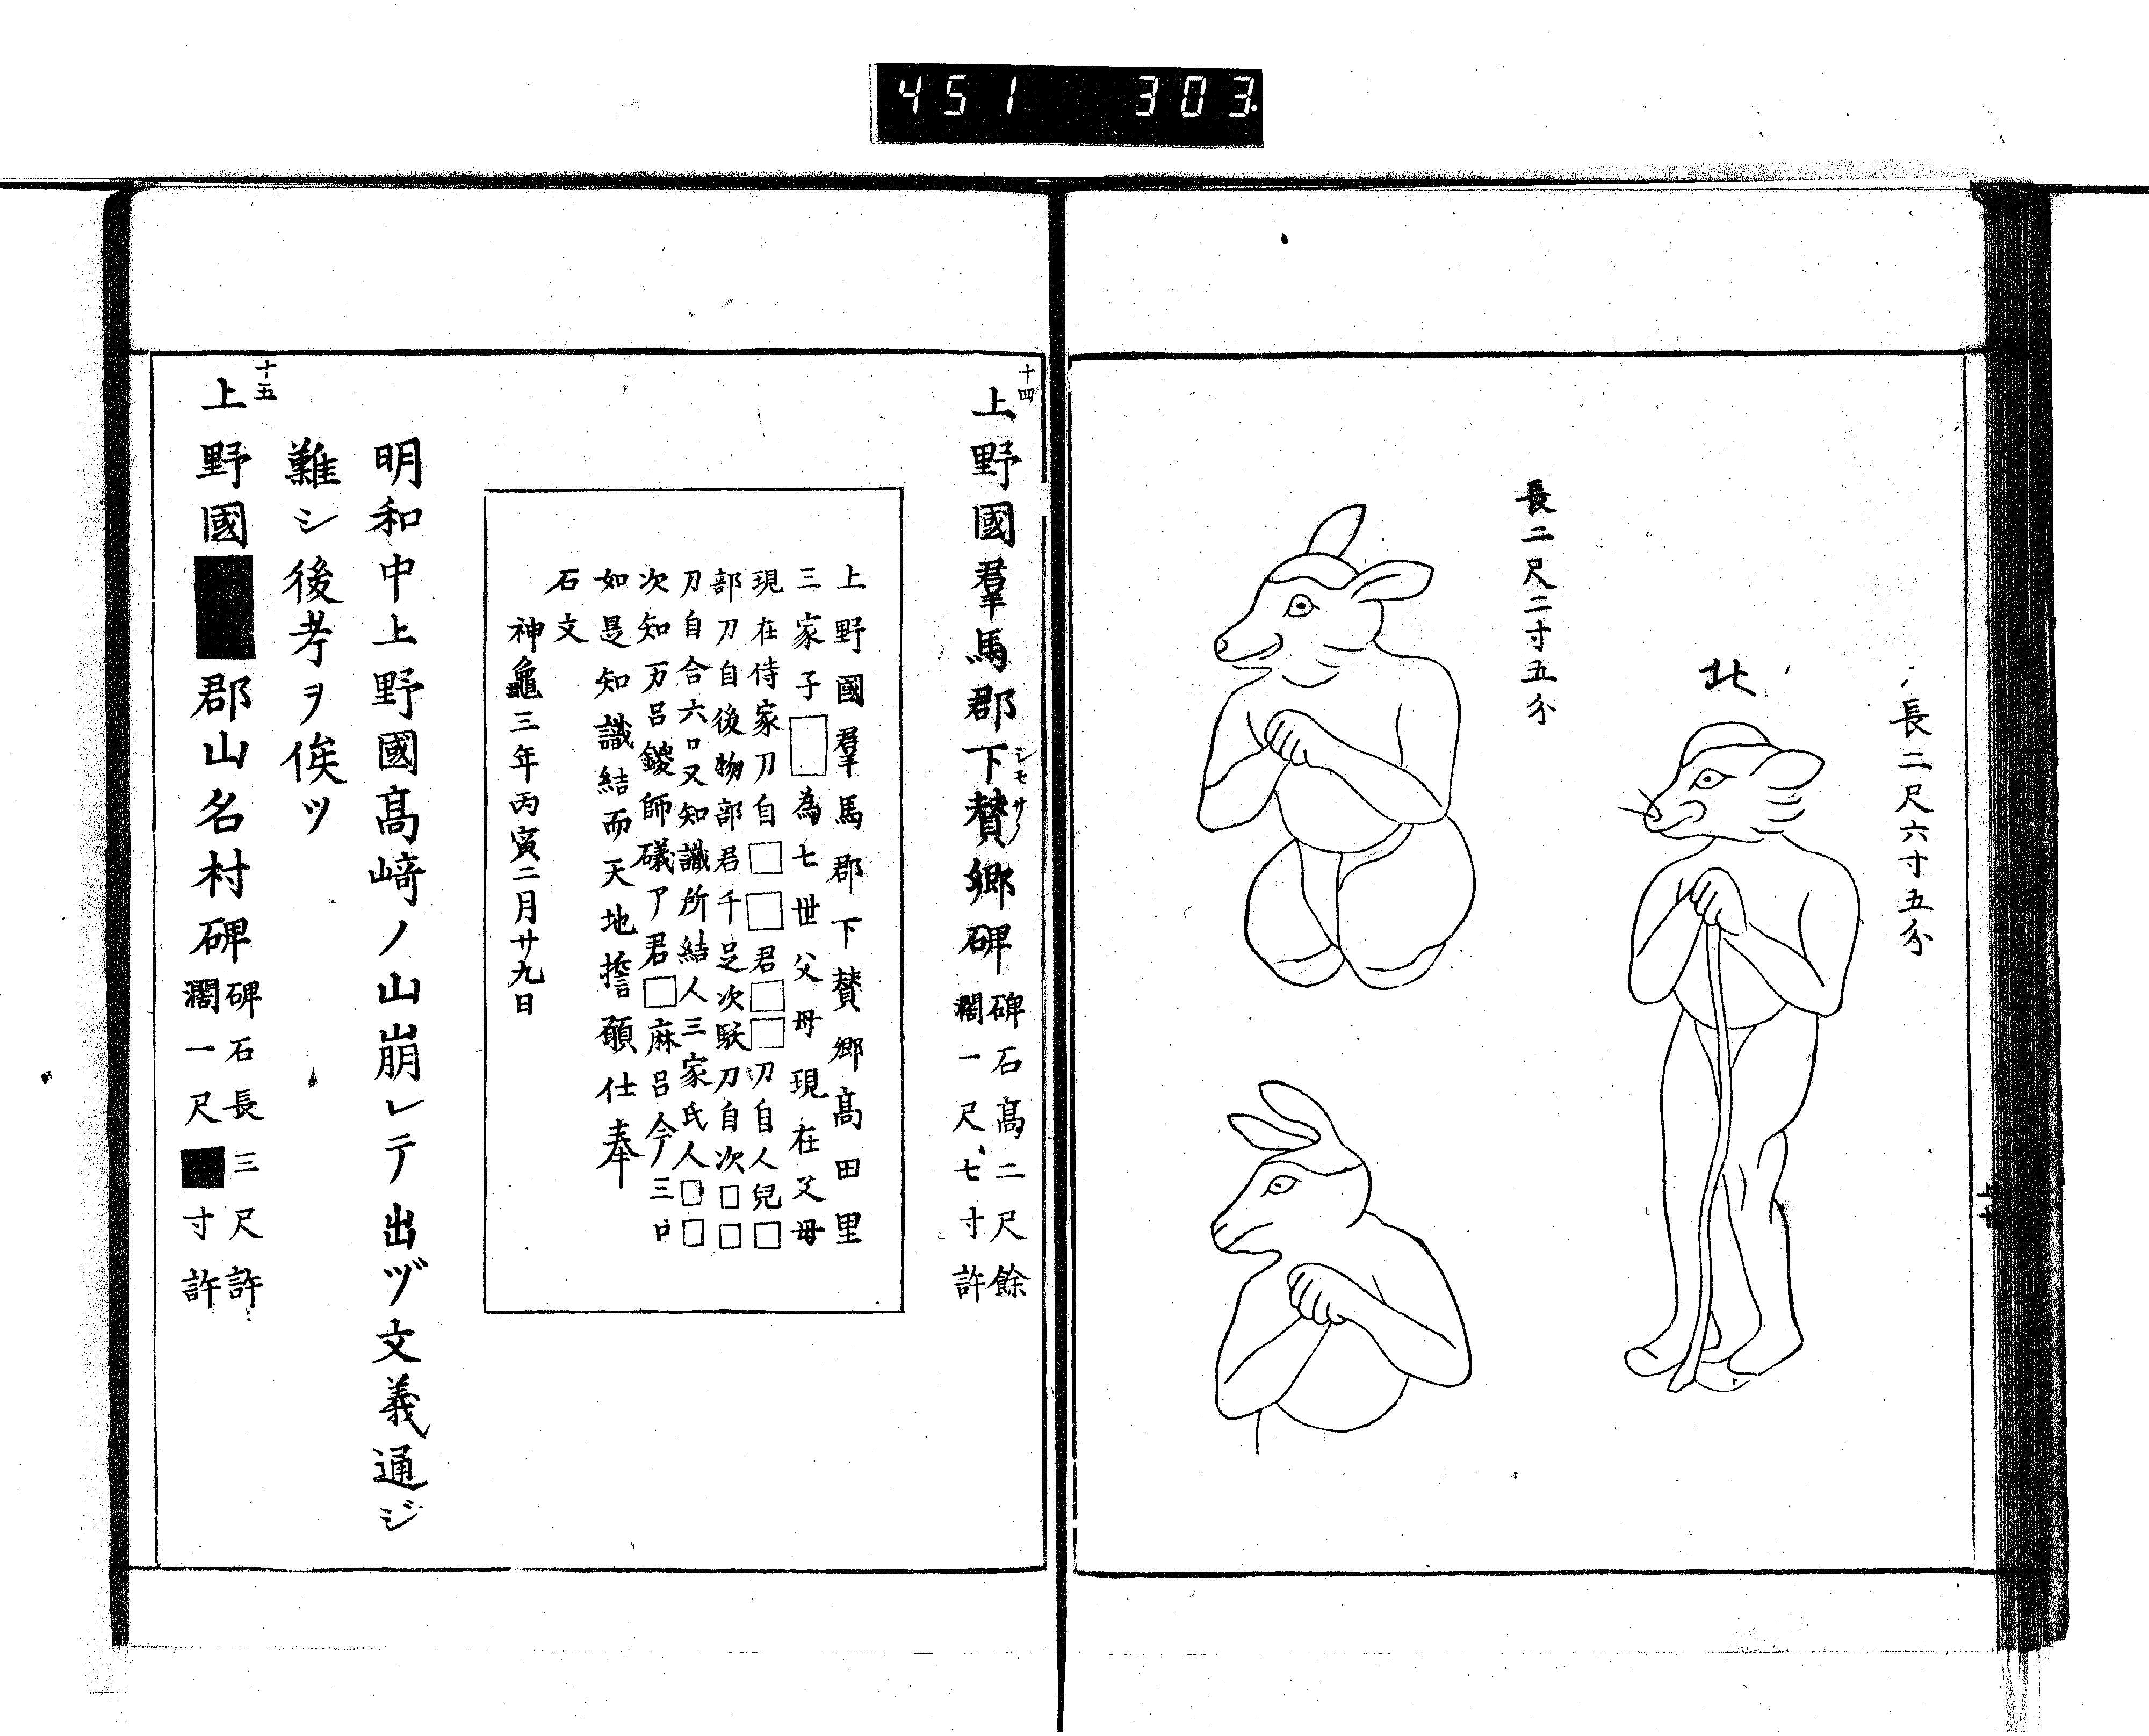 451 303
長二尺六寸五分
北
長二尺二寸五分
十四
上野國羣馬郡下賛郷碑
シモサノ
碑石髙二尺餘
濶一尺七寸許
上野國羣馬郡下賛郷髙田里
三家子□為七世父母現在父母
現在侍家刀自□□君□□刀自人兒□
部刀自後物部君千足次馶刀自次□□
刀自合六口又知識所結人三家氏人□□
次知万呂鍰師礒了君□麻呂今三口
如是知識結而天地擔願仕奉
石文
神龜三年丙寅二月廿九日
明和中上野國髙﨑ノ山崩レテ出ヅ文義通ジ
難シ後考ヲ俟ツ
十五
上野國■郡山名村碑
碑石長三尺許
濶一尺■寸許